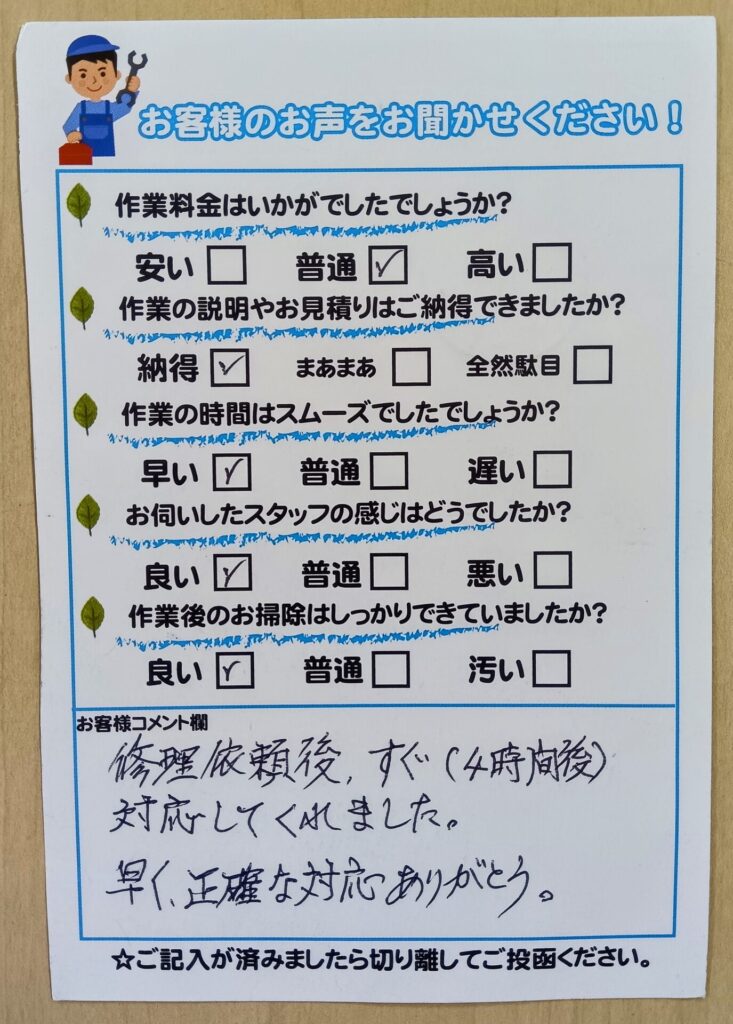 お客様のお声をお聞かせください！
作業料金はいかがでしたでしょうか?
安い □ 普通 ☑ 高い □
作業の説明やお見積りはご納得できましたか?
納得 ☑ まあまあ □ 全然駄目 □
作業の時間はスムーズでしたでしょうか?
早い ☑ 普通 □ 遅い □
お伺いしたスタッフの感じはどうでしたか?
良い ☑ 普通 □ 悪い □
作業後のお掃除はしっかりできていましたか?
良い ☑ 普通 □ 汚い □
お客様コメント欄
修理依頼後、すぐ(4時間後)
対応してくれました。
早く、正確な対応ありがとう。
☆ご記入が済みましたら切り離してご投函ください。